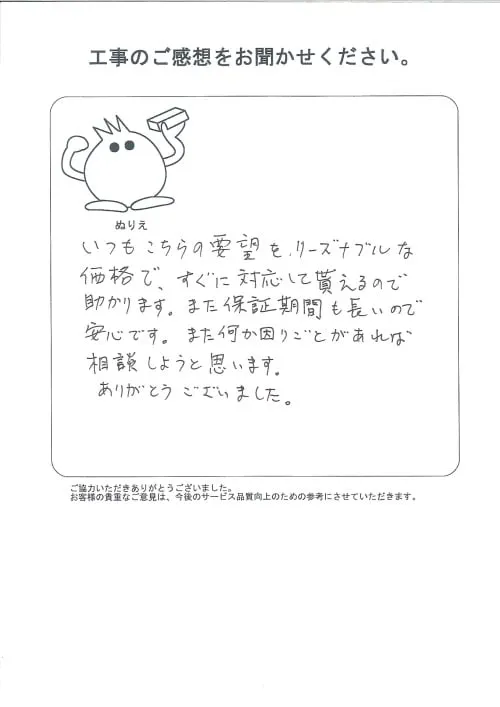 工事のご感想をお聞かせください。
ぬりえ
いつもこちらの要望を、リーズナブルな
価格で、すぐに対応して貰えるので
助かります。また保証期間も長いので
安心です。また何か困りごとがあれば
相談しようと思います。
ありがとうございました。
ご協力いただきありがとうございました。
お客様の貴重なご意見は、今後のサービス品質向上のための参考にさせていただきます。